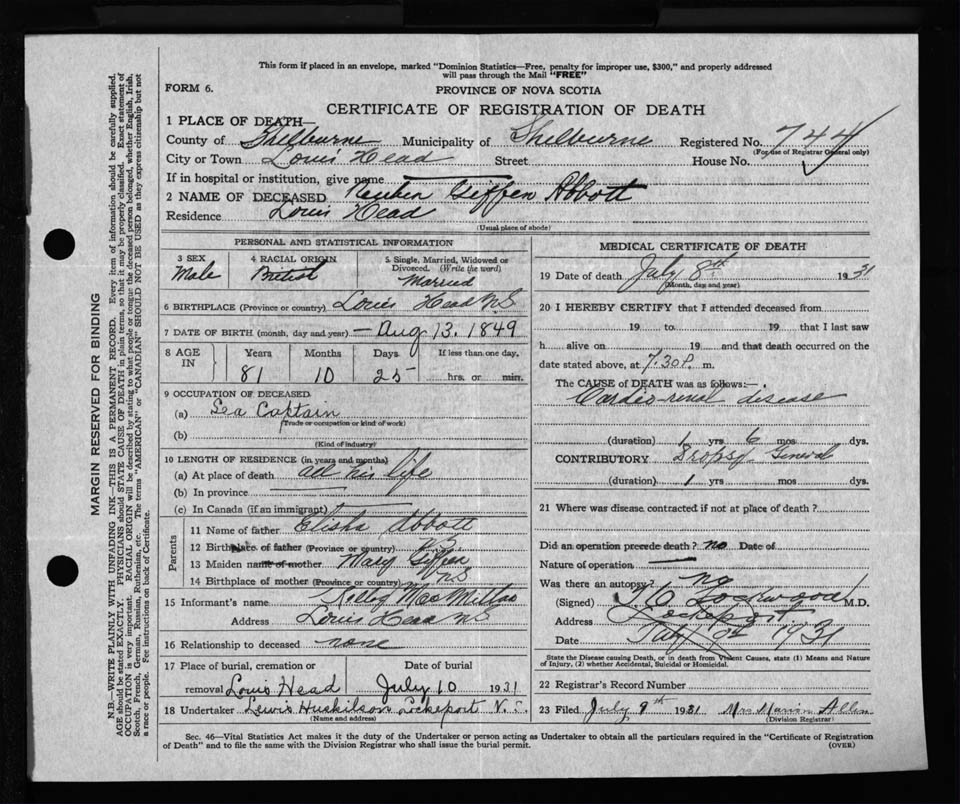 This form if placed in an envelope, marked "Dominion Statistics—Free, penalty for improper use, $300," and properly addressed
will pass through the Mail "FREE"
FORM 6.
PROVINCE OF NOVA SCOTIA
CERTIFICATE OF REGISTRATION OF DEATH
1 PLACE OF DEATH—
County of Shelburne Municipality of Shelburne Registered No. 744
(For use of Registrar General only)
City or Town Louis Head Street House No.
If in hospital or institution, give name
2 NAME OF DECEASED Reuben Giffen Abbott
Residence Louis Head
(Usual place of abode)
PERSONAL AND STATISTICAL INFORMATION
3 SEX 4 RACIAL ORIGIN 5 Single, Married, Widowed or
Divorced. (Write the word)
Male British Married
6 BIRTHPLACE (Province or country) Louis Head N.S
7 DATE OF BIRTH (month, day and year) — Aug 13. 1849
8 AGE IN Years Months Days If less than one day.
81 10 25 hrs. or min.
9 OCCUPATION OF DECEASED
(a) Sea Captain
(Trade or occupation or kind of work)
(b)
(Kind of industry)
10 LENGTH OF RESIDENCE (in years and months)
(a) At place of death all his life
(b) In province
(c) In Canada (if an immigrant)
Parents
11 Name of father Elisha Abbott
12 Birthplace of father (Province or country) N.S
13 Maiden name of mother Mary Giffen
14 Birthplace of mother (Province or country) N.S
15 Informant's name MacMillan
Address Louis Head N.S
16 Relationship to deceased none
17 Place of burial, cremation or Date of burial
removal Louis Head July 10 1931
18 Undertaker Lewis Huskilson Lockeport N.S.
(Name and address)
MEDICAL CERTIFICATE OF DEATH
19 Date of death July 8th 1931
(Month, day and year)
20 I HEREBY CERTIFY that I attended deceased from
19 to 19 that I last saw
h alive on 19 and that death occurred on the
date stated above, at 7.30 P. m.
The CAUSE of DEATH was as follows:—
Cardio-renal disease
(duration) 1 yrs 6 mos dys.
CONTRIBUTORY Dropsy General
(duration) 1 yrs mos dys.
21 Where was disease contracted if not at place of death?
Did an operation precede death? no Date of
Nature of operation —
Was there an autopsy? no
(Signed) Lockwood M.D.
Address Lockeport
Date July 1931
State the Disease causing Death, or in death from Violent Causes, state (1) Means and Nature
of Injury, (2) whether Accidental, Suicidal or Homicidal.
22 Registrar's Record Number
23 Filed July 8th 1931 Mrs Allen
(Division Registrar)
Sec. 46—Vital Statistics Act makes it the duty of the Undertaker or person acting as Undertaker to obtain all the particulars required in the "Certificate of Registration
of Death" and to file the same with the Division Registrar who shall issue the burial permit.
(OVER)
MARGIN RESERVED FOR BINDING
N.B.—WRITE PLAINLY, WITH UNFADING INK—THIS IS A PERMANENT RECORD. Every item of information should be carefully supplied.
AGE should be stated EXACTLY. PHYSICIANS should STATE CAUSE OF DEATH in plain terms, so that it may be properly classified. Exact statement of
OCCUPATION is very important. RACIAL ORIGIN will be described by stating to what people or tongue the deceased person belonged, whether English, Irish,
Scotch, French, German, Russian, Ruthenian, etc. The terms "AMERICAN" or "CANADIAN" SHOULD NOT BE USED as they express citizenship but not
a race or people. See instructions on back of Certificate.